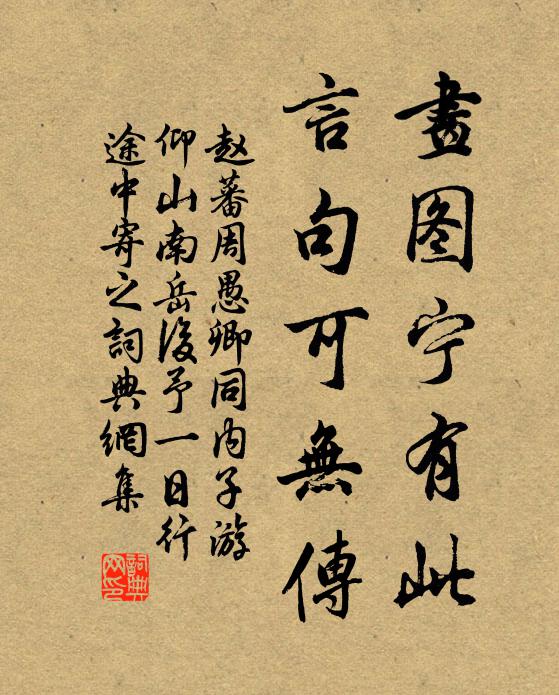 畫图宁有此
言句可無傳
赵蕃周愚卿同内子游
仰山南岳後予一日行
途中寄之詞典網集
詞典网印